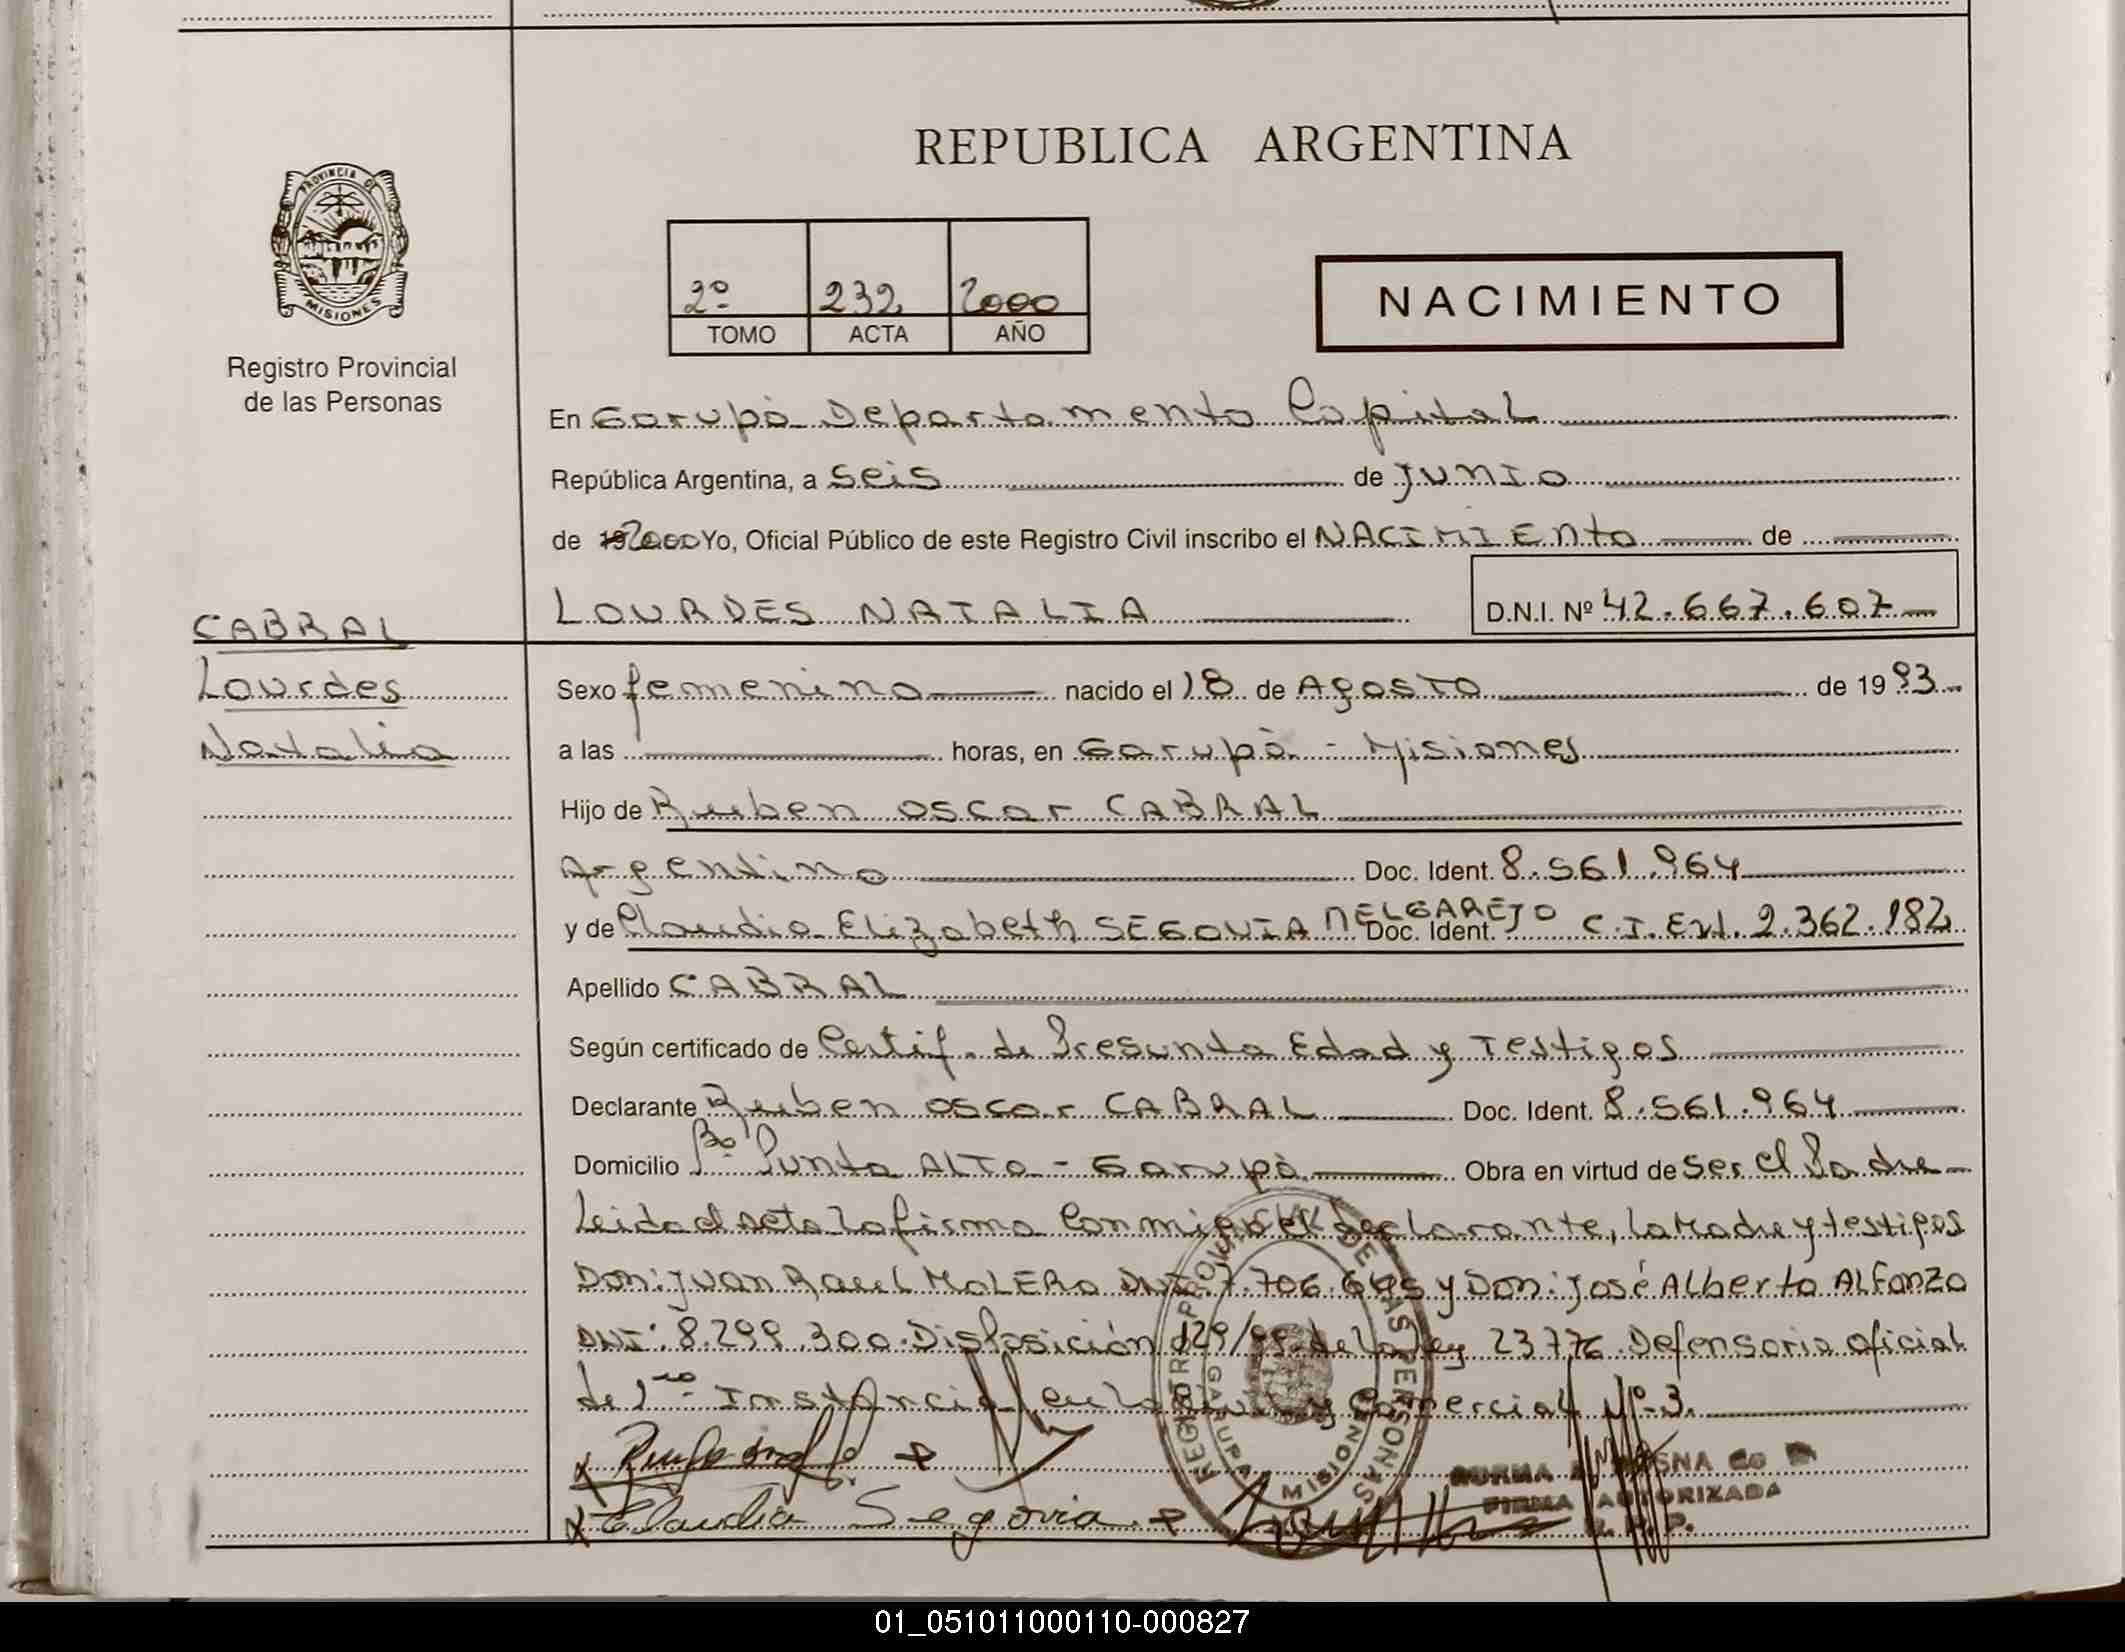 REPUBLICA ARGENTINA
PROVINCIA DE
MISIONES
Registro Provincial
de las Personas
2º 232 2000
TOMO ACTA AÑO
NACIMIENTO
En Garupá Departamento Capital
República Argentina, a seis de Junio
de 19 2000 Yo, Oficial Público de este Registro Civil inscribo el NACIMIENTO de
LOURDES NATALIA D.N.I. Nº 42.667.607
CABRAL
Lourdes
Natalia
Sexo femenino nacido el 18 de Agosto de 1993
a las horas, en Garupá - Misiones
Hijo de Ruben Oscar CABRAL
Argentino Doc. Ident. 8.561.964
y de Claudia Elizabeth SEGOVIA MELGAREJO Doc. Ident. C.I. Ext. 2.362.182
Apellido CABRAL
Según certificado de Certif. de Presunta Edad y Testigos
Declarante Ruben Oscar CABRAL Doc. Ident. 8.561.964
Domicilio Bº Punta Alta - Garupá Obra en virtud de ser el Padre
Leida el acta la firma conmigo el declarante, la Madre y testigos
Don: Juan Raul MOLERO DNI: 7.706.645 y Don: José Alberto ALFONZO
DNI: 8.299.300. Disposición 129/99 de la Ley 23776 Defensoria oficial
de 1ra Instancia en lo Civil y Comercial Nº 3.
REGISTRO PROVINCIAL DE LAS PERSONAS
GARUPA MISIONES
Claudia Segovia
NORMA
FIRMA AUTORIZADA
01_051011000110-000827